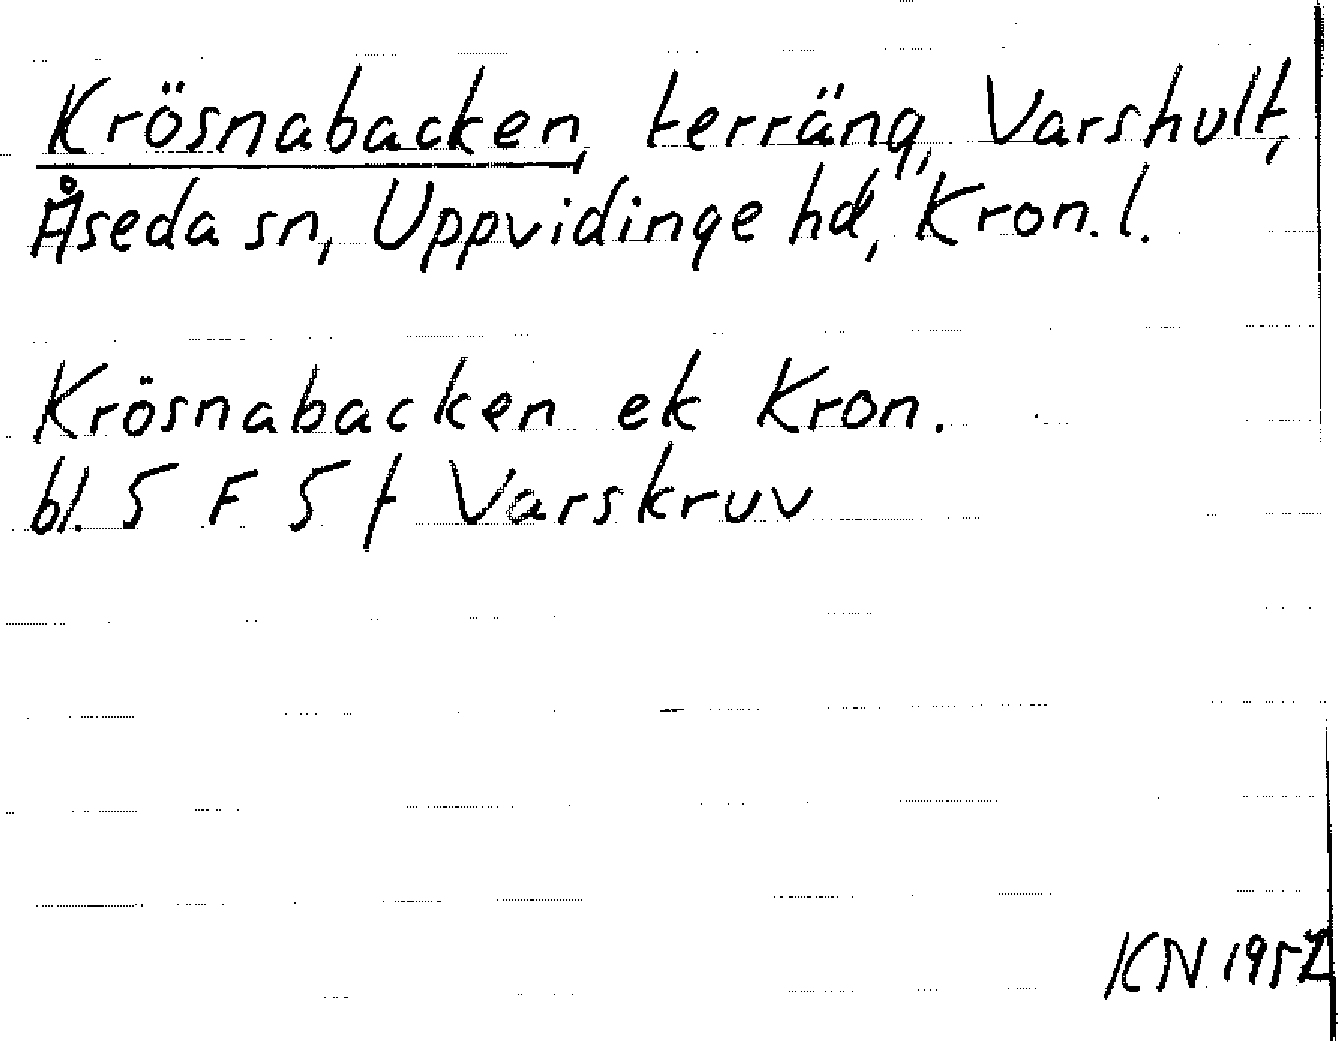 Krösnabacken, terräng, Varshult,
Åseda sn, Uppvidinge hd, Kron. l.
Krösnabacken ek Kron.
bl. 5 F 5 f Varskruv
KN 1957